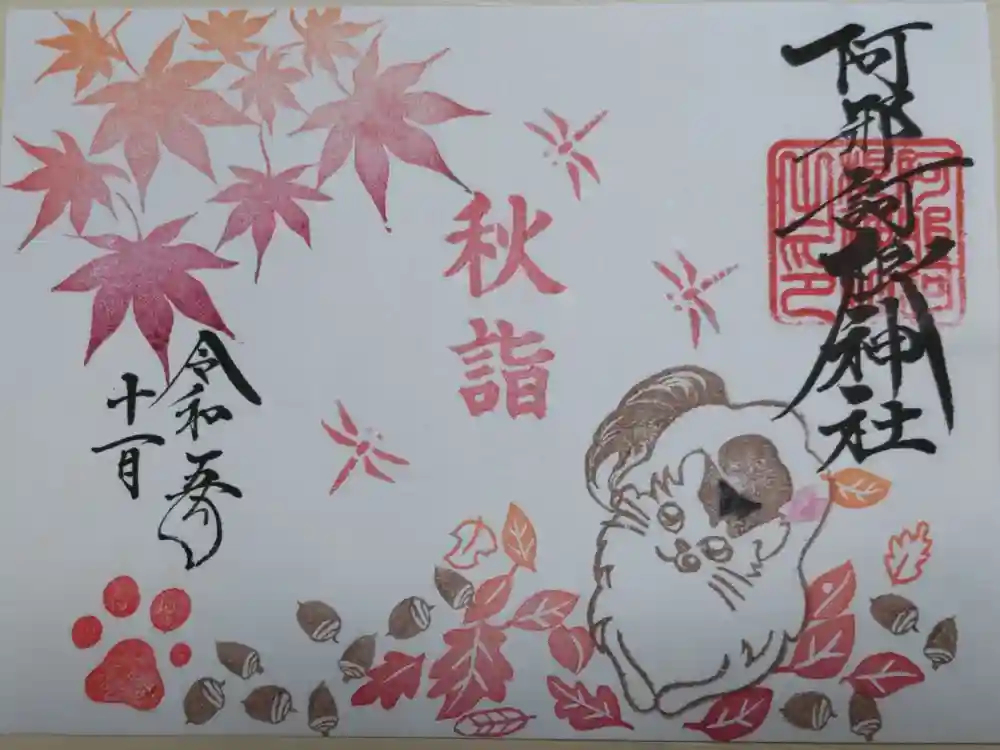 阿邪訶根神社
秋詣
令和五年
十一月